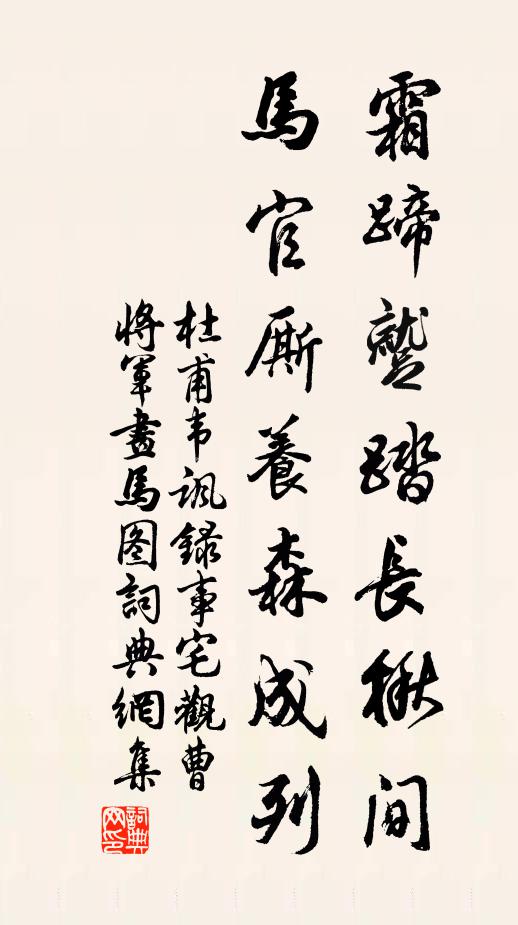 霜蹄蹵踏長楸間
馬官厮養森成列
杜甫韦諷録事宅觀曹
將軍畫馬图詞典網集
詞典网印